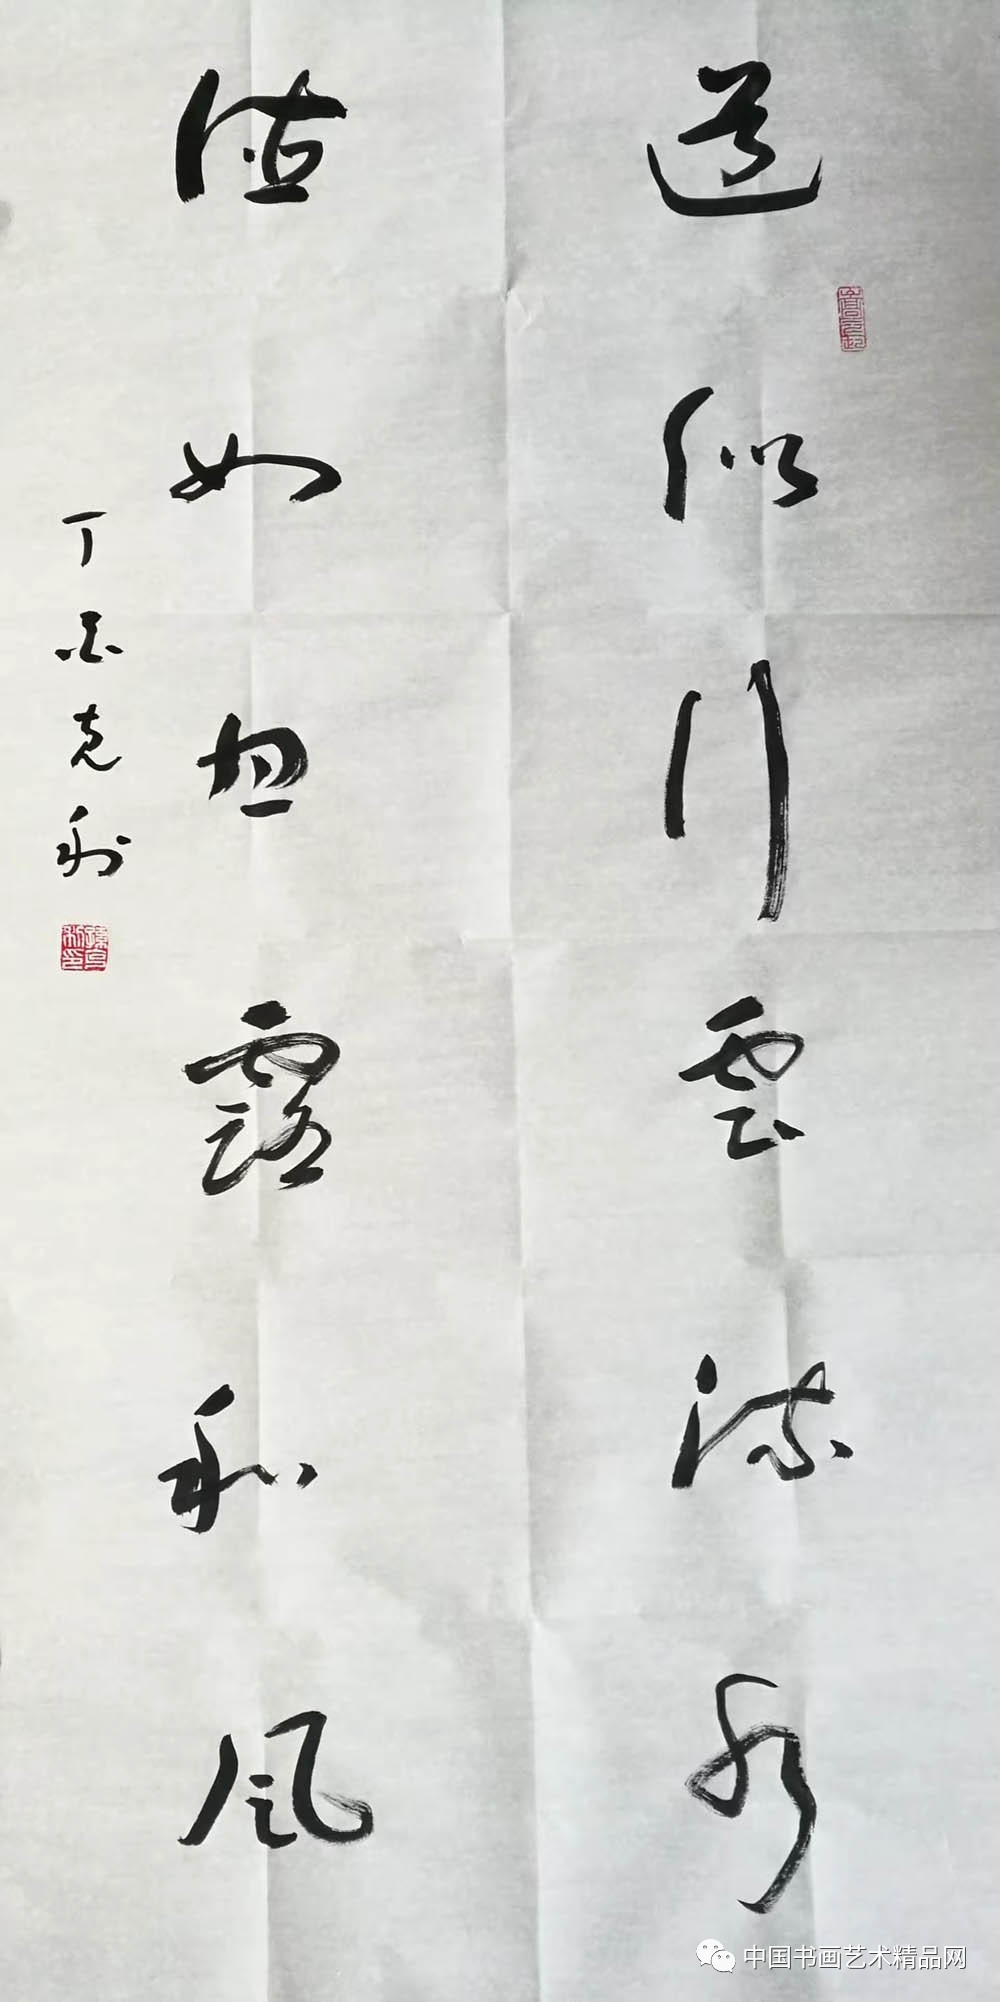 道似行雲流水
德如甘露和风
丁酉克利
中国书画艺术精品网